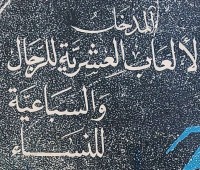 المدخل
لألعاب العشرية للرجال
والسباعية
للنساء